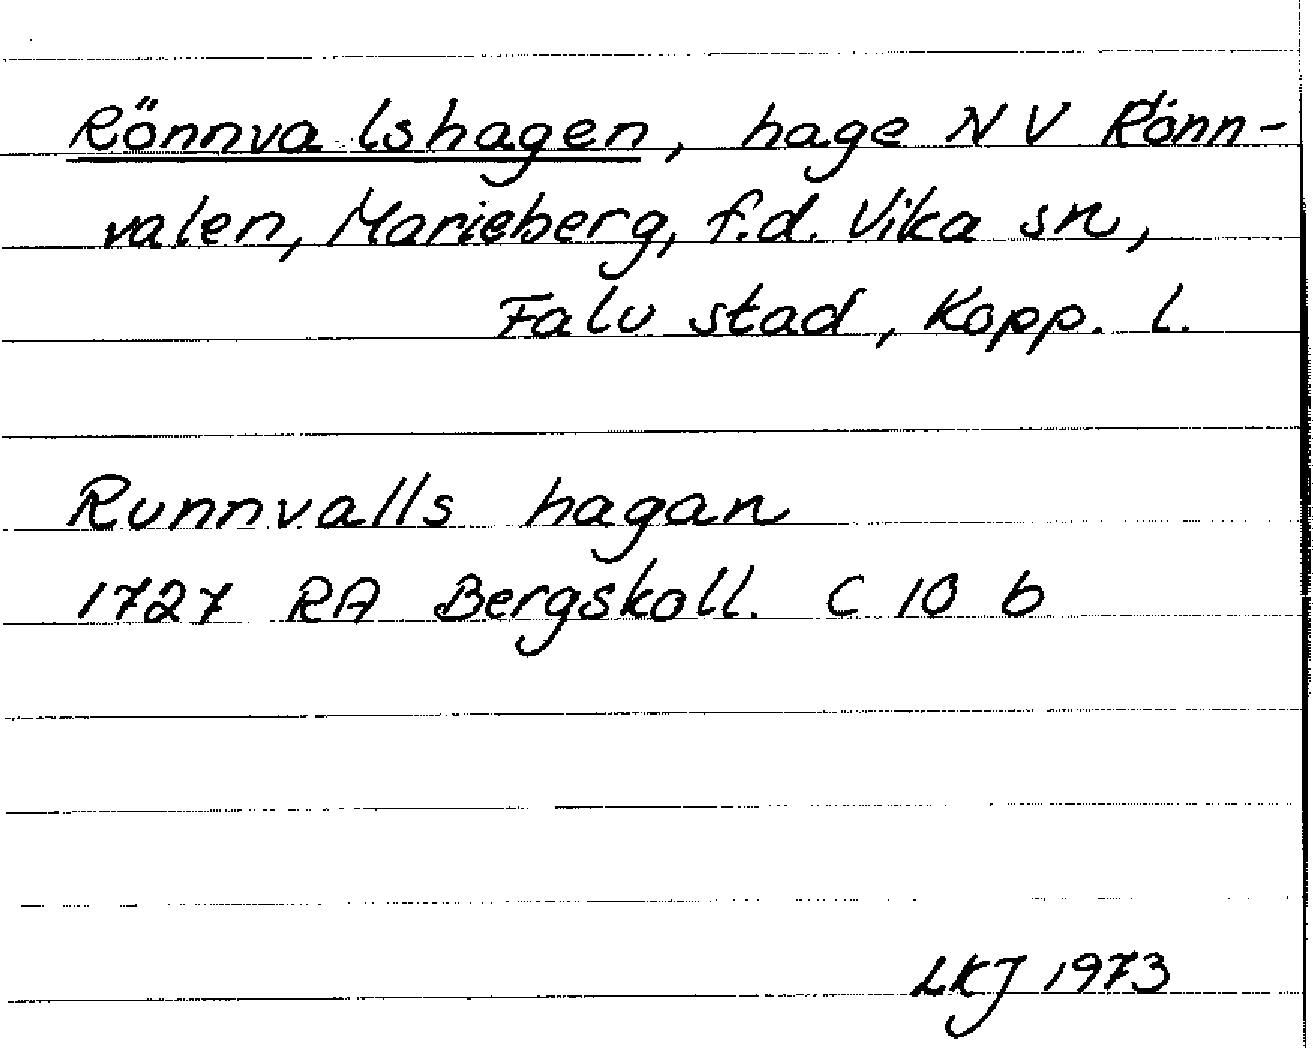 Rönnvalshagen, hage NV Rönn-
valen, Marieberg, f.d. Vika sn,
Falu stad, Kopp. l.
Runnvalls hagan
1727 RA Bergskoll. C 10 b
LKJ 1973